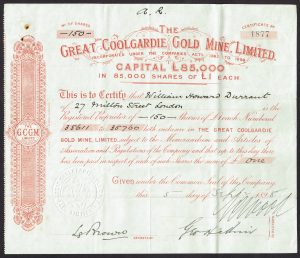 A. R.
Nº OF SHARES
—150—
CERTIFICATE Nº
1877
THE
GREAT COOLGARDIE GOLD MINE, LIMITED.
INCORPORATED UNDER THE COMPANIES ACTS, 1862 TO 1890.
CAPITAL £85,000
IN 85,000 SHARES OF £1 EACH.
This is to Certify that William Howard Durrant
of 27 Milton Street London
is the Registered Proprietor of —150— Shares of £1 each Numbered
35611 35760 both inclusive in THE GREAT COOLGARDIE
GOLD MINE, LIMITED. subject to the Memorandum and Articles of
Association and Regulations of the Company and that up to this day there
has been paid in respect of each of such Shares the sum of £ One
Given under the Common Seal of the Company,
this 5 day of Sept 1895
GCGM
LIMITED